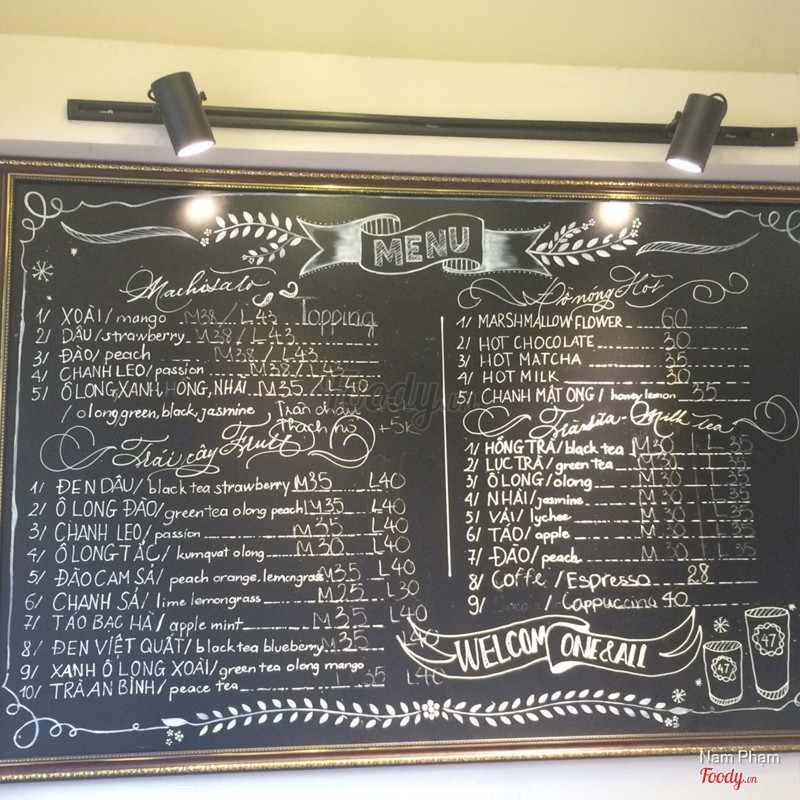 MENU
Machisato
1/ XOÀI/mango M38/L43 Topping
2/ DÂU/strawberry M38/L43
3/ ĐÀO/peach M38/L43
4/ CHANH LEO/passion M38/L43
5/ Ô LONG,XANH,HỒNG,NHÀI M35/L40
/olong,green,black,jasmine Trân châu
Thạch +5k
Trái cây Fruit
1/ ĐEN DÂU/black tea strawberry M35 L40
2/ Ô LONG ĐÀO/green tea olong peach M35 L40
3/ CHANH LEO/passion M35 L40
4/ Ô LONG TẮC/kumquat olong M30 L40
5/ ĐÀO CAM SẢ/peach orange,lemongrass M35 L40
6/ CHANH SẢ/lime lemongrass M25 L30
7/ TÁO BẠC HÀ/apple mint M35
8/ ĐEN VIỆT QUẤT/black tea blueberry M35 L40
9/ XANH Ô LONG XOÀI/green tea olong mango
10/ TRÀ AN BÌNH/peace tea 35 L40
Đồ nóng Hot
1/ MARSHMALLOW FLOWER 60
2/ HOT CHOCOLATE 30
3/ HOT MATCHA 35
4/ HOT MILK 30
5/ CHANH MẬT ONG/honey lemon 35
Trà sữa - Milk tea
1/ HỒNG TRÀ/black tea M30 L35
2/ LỤC TRÀ/green tea M30 L35
3/ Ô LONG/olong M30 L35
4/ NHÀI/jasmine M30 L35
5/ VẢI/lychee M30 L35
6/ TÁO/apple M30 L35
7/ ĐÀO/peach M30 L35
8/ Coffe/Espresso 28
9/ /Cappuccino 40
WELCOM ONE&ALL
47
47
Foody.vn
Nam Phạm
Foody.vn